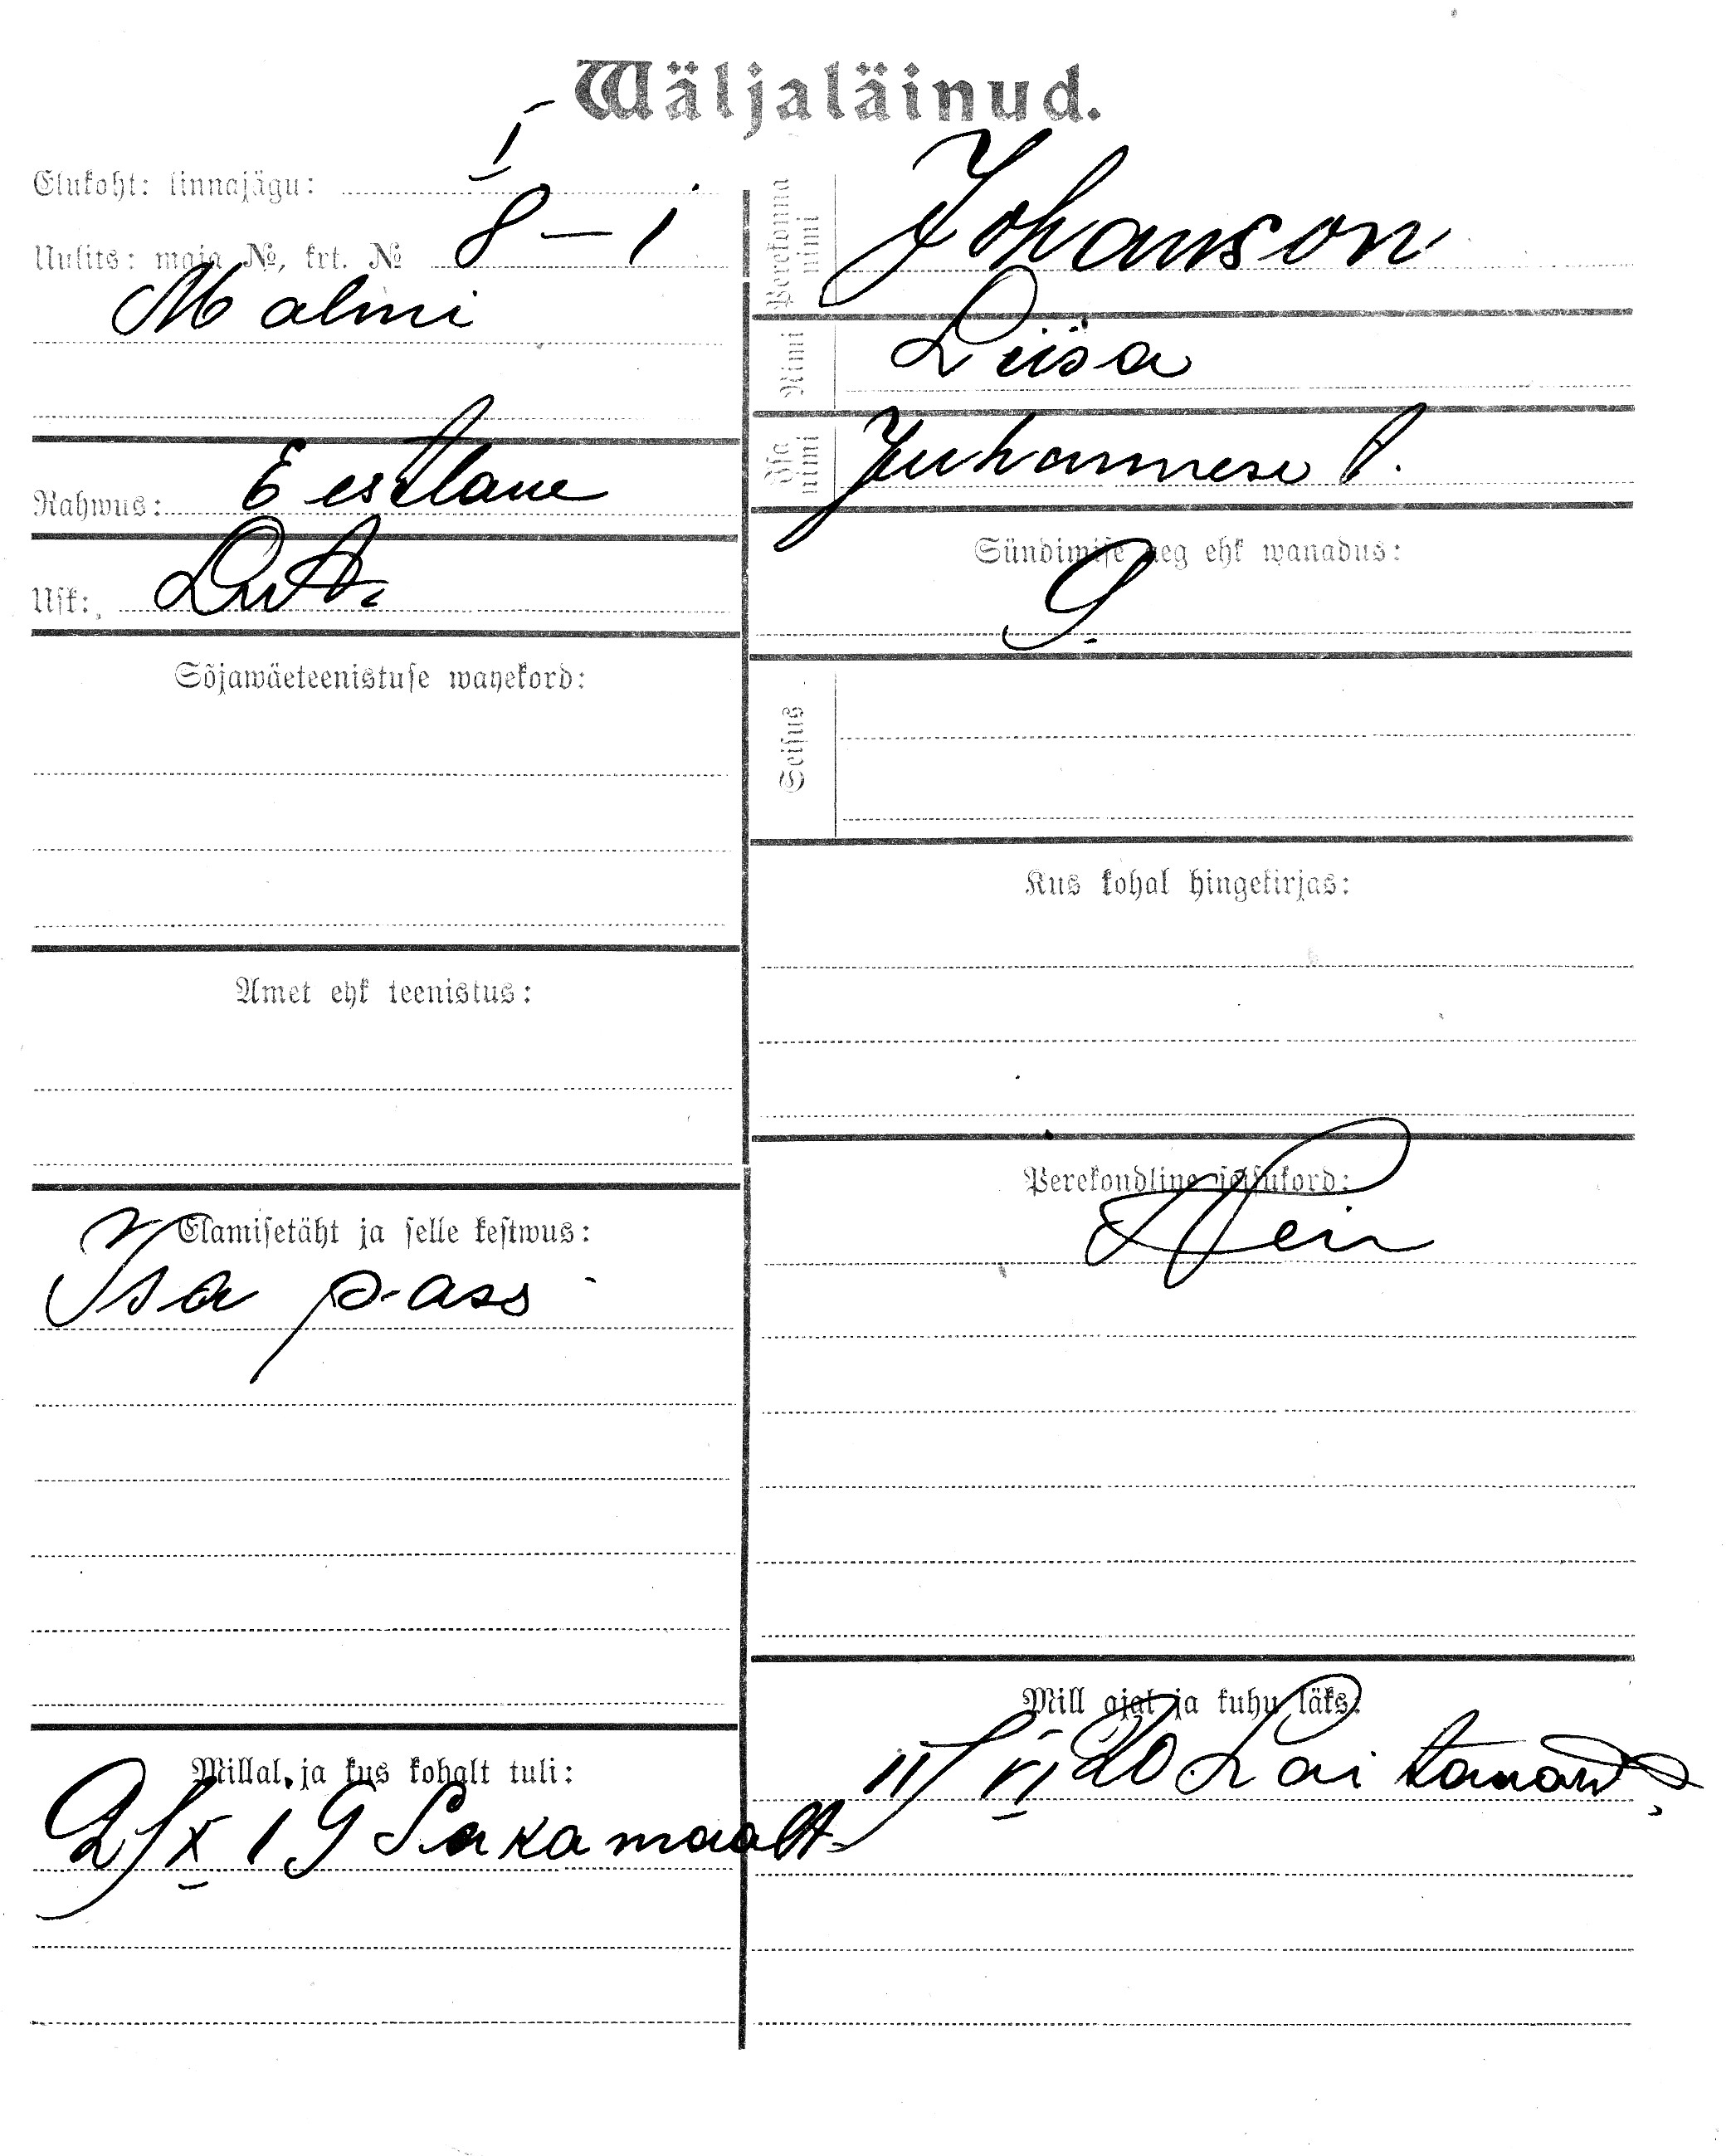 Wäljaläinud.
Elukoht: linnajägu: I
Uulits: maja №, krt. № 8 – 1
Malmi
Rahwus: Eestlane
Usk: Lut.
Sõjawäeteenistuse wahekord:
Amet ehk teenistus:
Elamisetäht ja selle kestwus:
Isa pass
Millal ja kus kohalt tuli:
2/X 19 Sakamaalt
Perekonna nimi Johanson
Nimi Liisa
Isa nimi Juhannese t.
Sündimise aeg ehk wanadus:
9.
Seisus
Kus kohal hingekirjas:
Perekondline seisukord:
Nein
Mill ajal ja kuhu läks:
11/VI 20 Lai tänaw